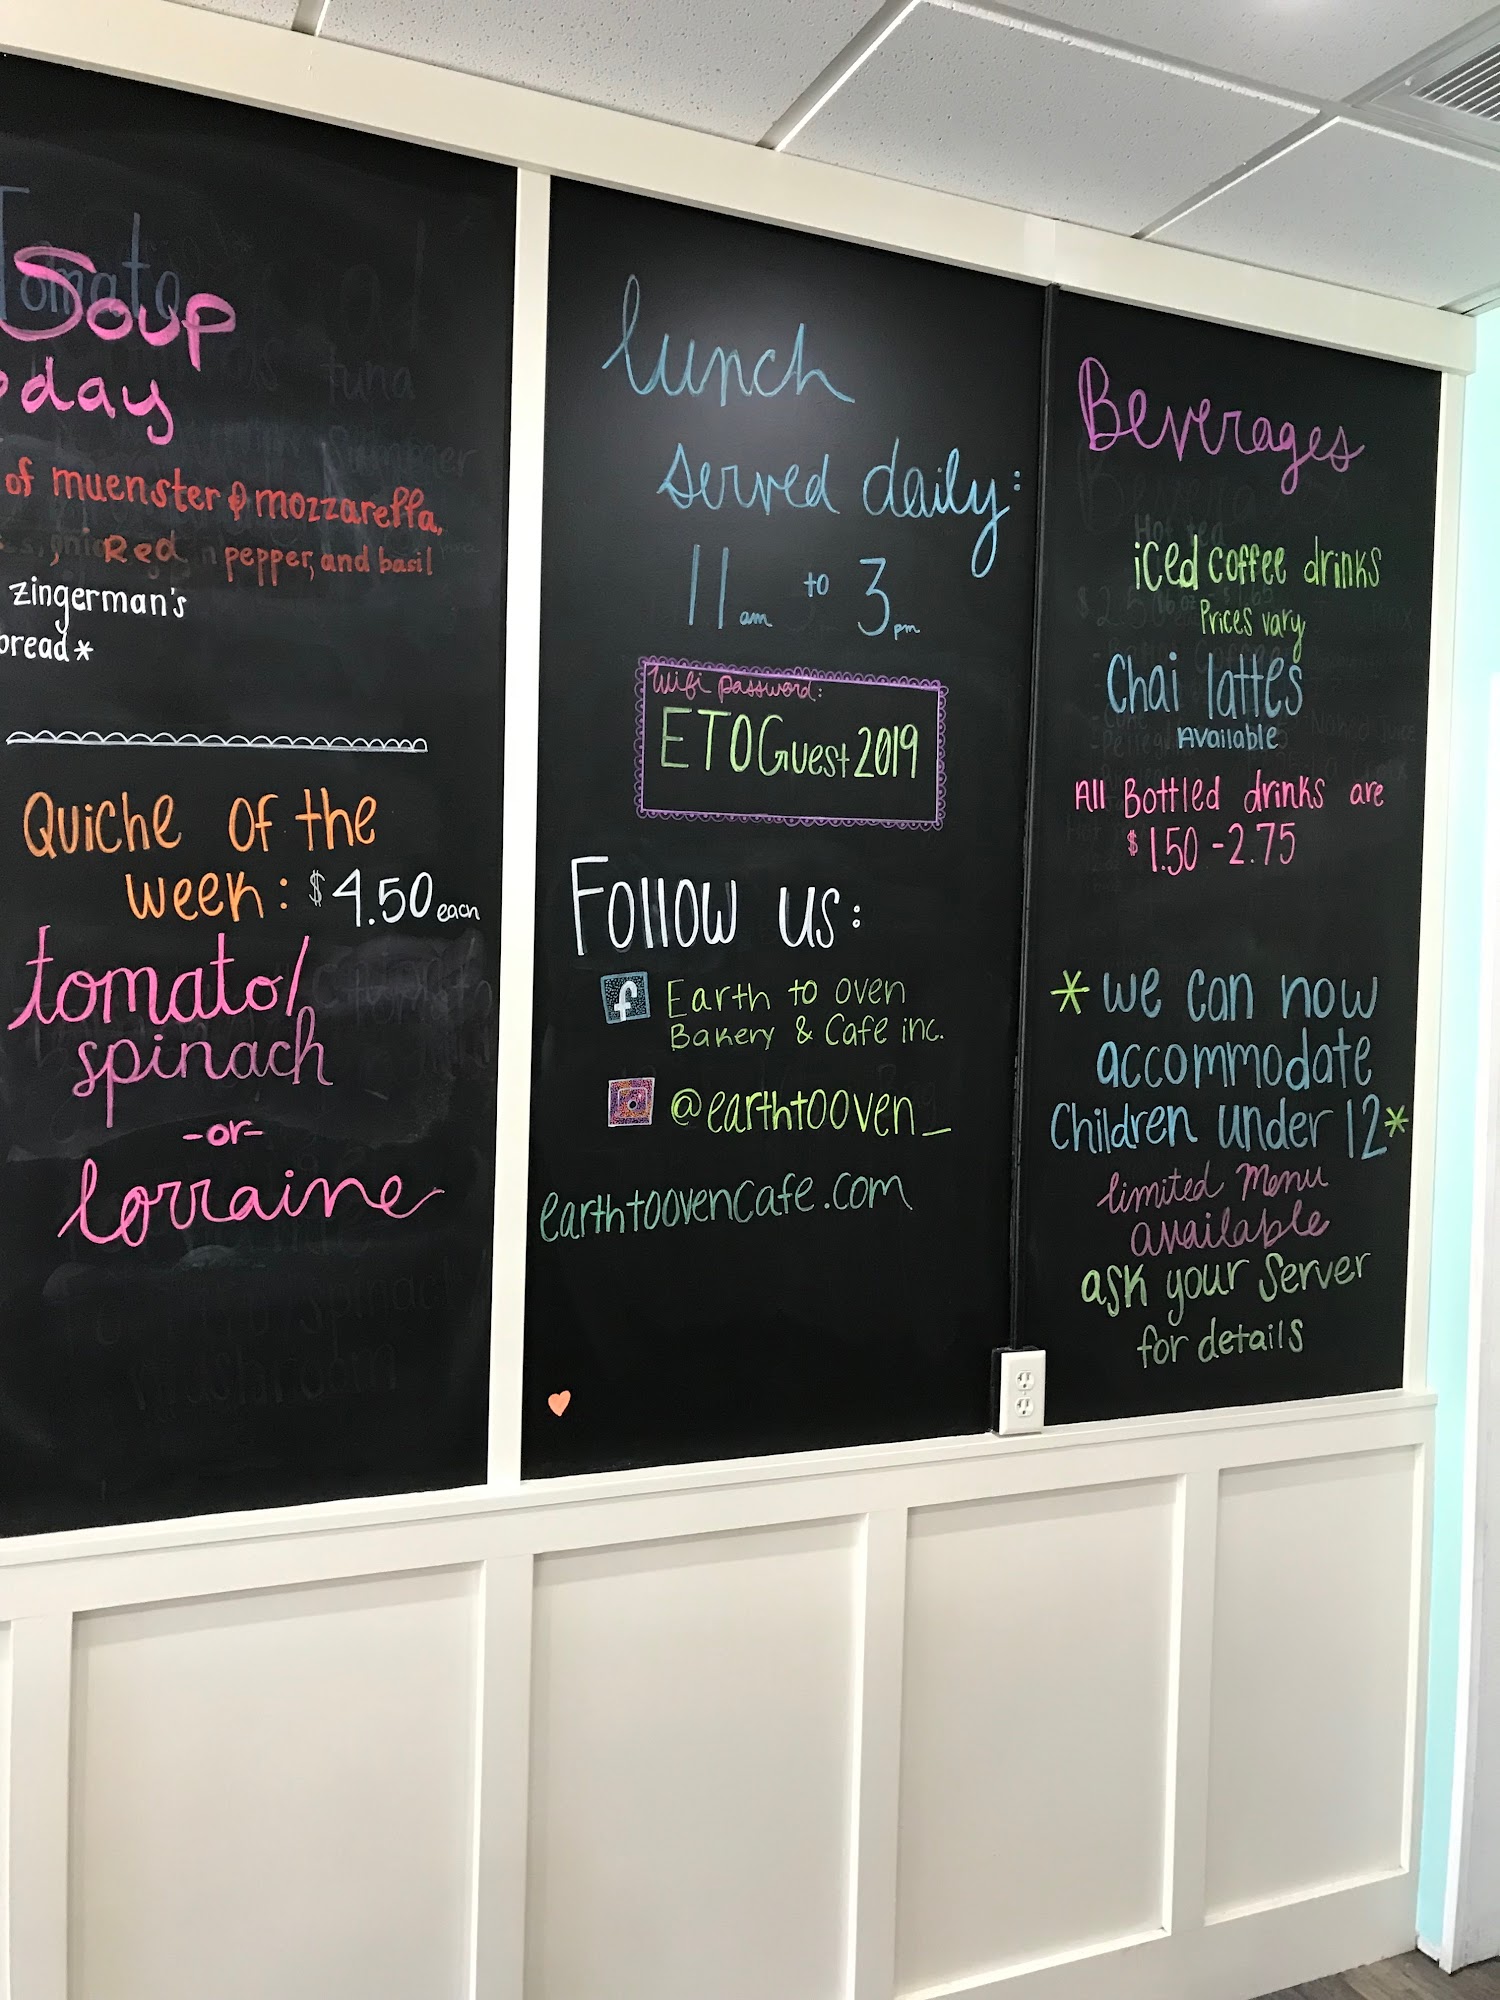 Soup
oday
of muenster & mozzarella,
Red pepper, and basil
zingerman's
bread*
Quiche of the
week: $4.50 each
tomato/
spinach
-or-
lorraine
lunch
served daily:
11am to 3pm
Wifi password:
ETOGuest2019
Follow us:
f Earth to oven
Bakery & Cafe inc.
@earthtooven_
earthtoovencafe.com
Beverages
iced coffee drinks
Prices vary
Chai lattes
Available
All Bottled drinks are
$1.50-2.75
*we can now
accommodate
Children under 12*
limited menu
available
ask your server
for details